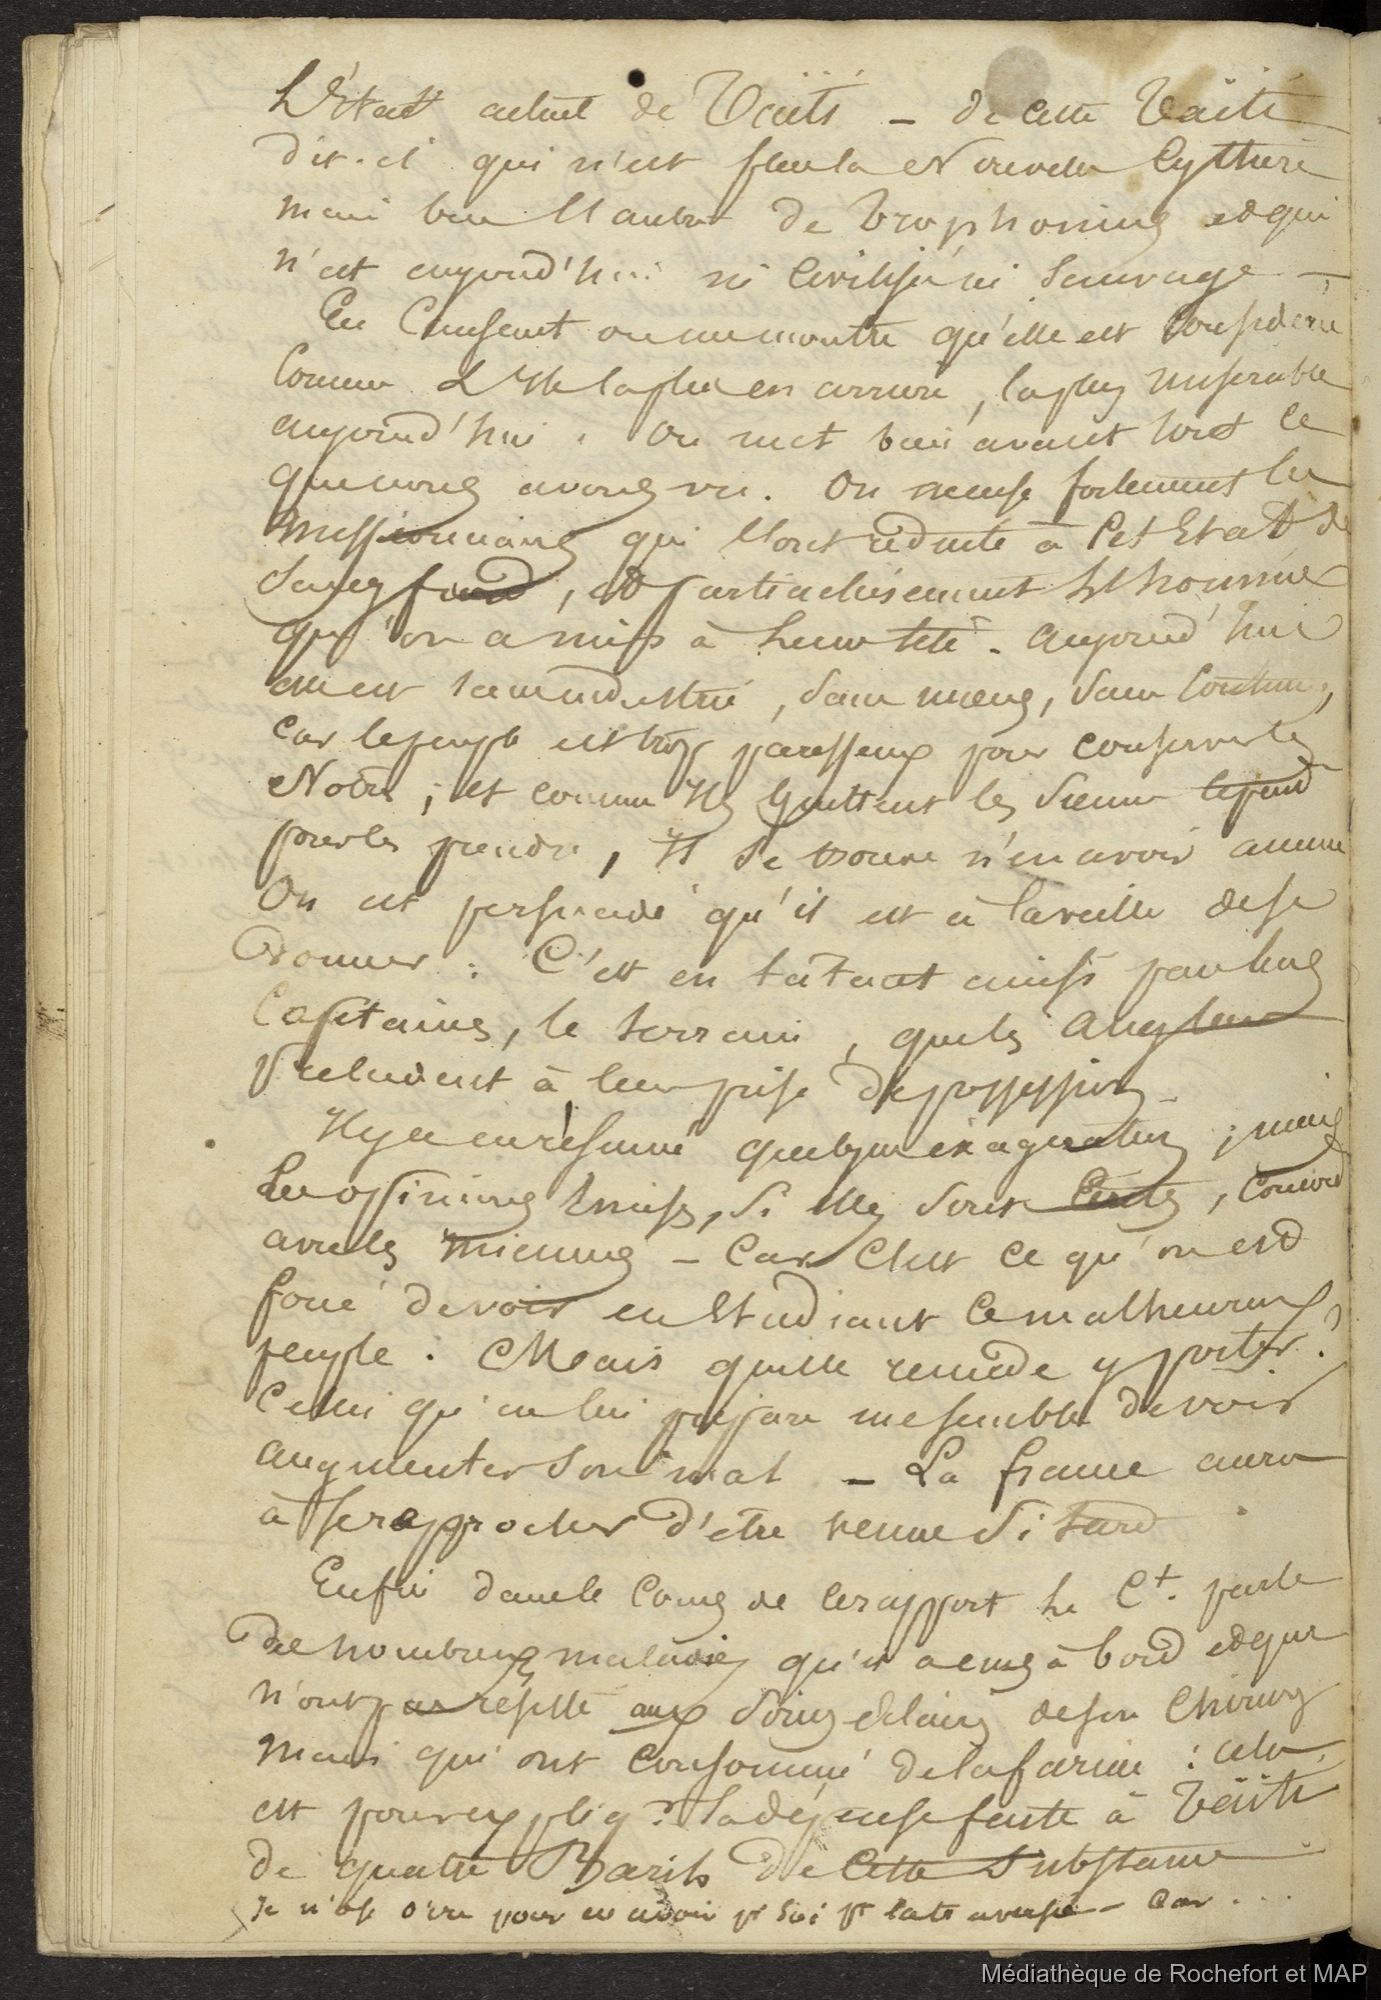 L'état actuel de Taïti – de cette Taïti
dit-il qui n'est plus la Nouvelle Cythère
mais bien l'antre de Trophonius et qui
n'est aujourd'hui ni civilisé ni sauvage –
En causant on me montre qu'elle est considérée
comme l'Ile la plus en arrière, la plus misérable
aujourd'hui. On met bien avant tout ce
que nous avons vu. On accuse fortement les
missionnaires qui l'ont réduite à cet Etat de
sang froid, et particulièrement l'homme
qu'on a mis à leur tête. aujourd'hui
elle est sans industrie, sans mœurs, sans coutumes,
car le peuple est trop paresseux pour conserver les
Notres ; et comme Ils quittent les siennes
pour les prendre, Il se trouve n'en avoir aucune
On est persuadé qu'il est à la veille de se
donner : C'est en tatant ainsi par leurs
Capitaines, le terrain, que les Anglais
préludent à leur prise de possession.
Il y a en résumé quelque exagération ; mais
les opinions émises, si elles sont , 
avec les miennes – Car c'est ce qu'on est
forcé de voir en Etudiant ce malheureux
peuple. Mais quelle remède y porter ?
Celui qu'on lui prépare me semble devoir
augmenter son mal – La france aura
à se reprocher d'être venue si tard
Enfin dans le cours de ce rapport le Ct. parle
de nombreux malades qu'il a eus à bord et qui
n'ont pas résisté aux soins éclairés de son chirurg
mais qui ont consommé de la farine : cela
est pour expliqr la dépense faite à Taïti
de quatre Barils de cette substance
Je n'ose pour en avoir – Car ...
Médiathèque de Rochefort et MAP